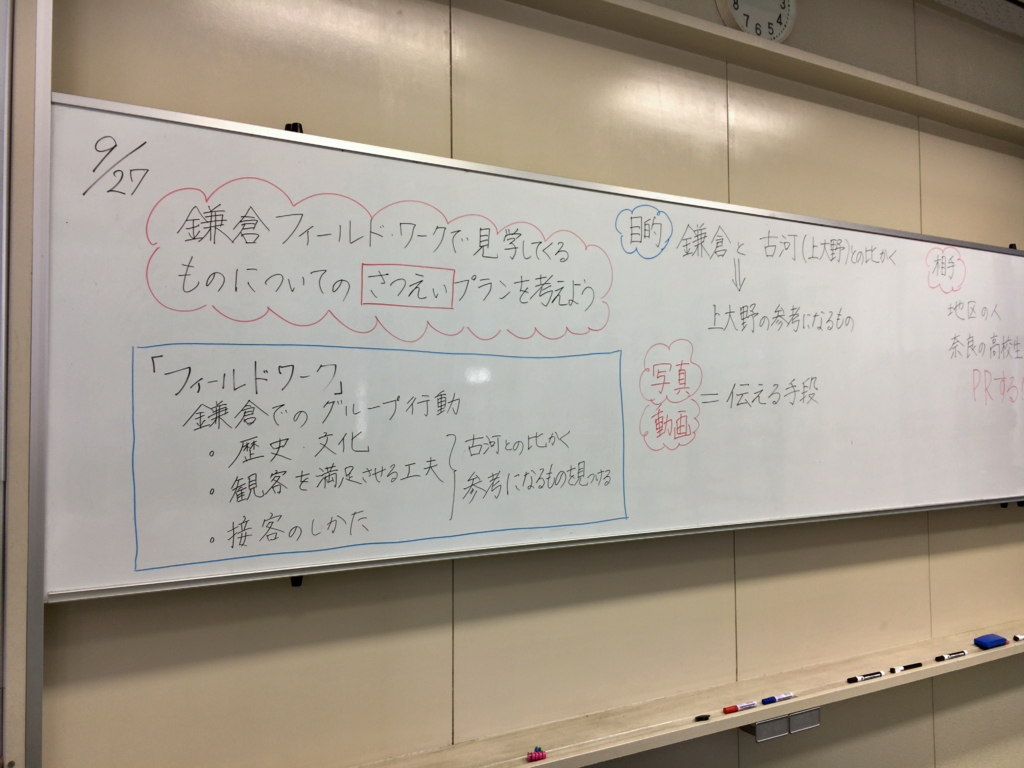 9/27
鎌倉フィールド・ワークで見学してくる
ものについてのさつえいプランを考えよう
「フィールドワーク」
鎌倉でのグループ行動
・歴史・文化
・観客を満足させる工夫
・接客のしかた
古河との比かく
参考になるものを見つける
目的
鎌倉と古河(上大野)との比かく
⇓
上大野の参考になるもの
写真
動画
=伝える手段
相手
地区の人
奈良の高校生
PRする
8 7 6 5 4 3